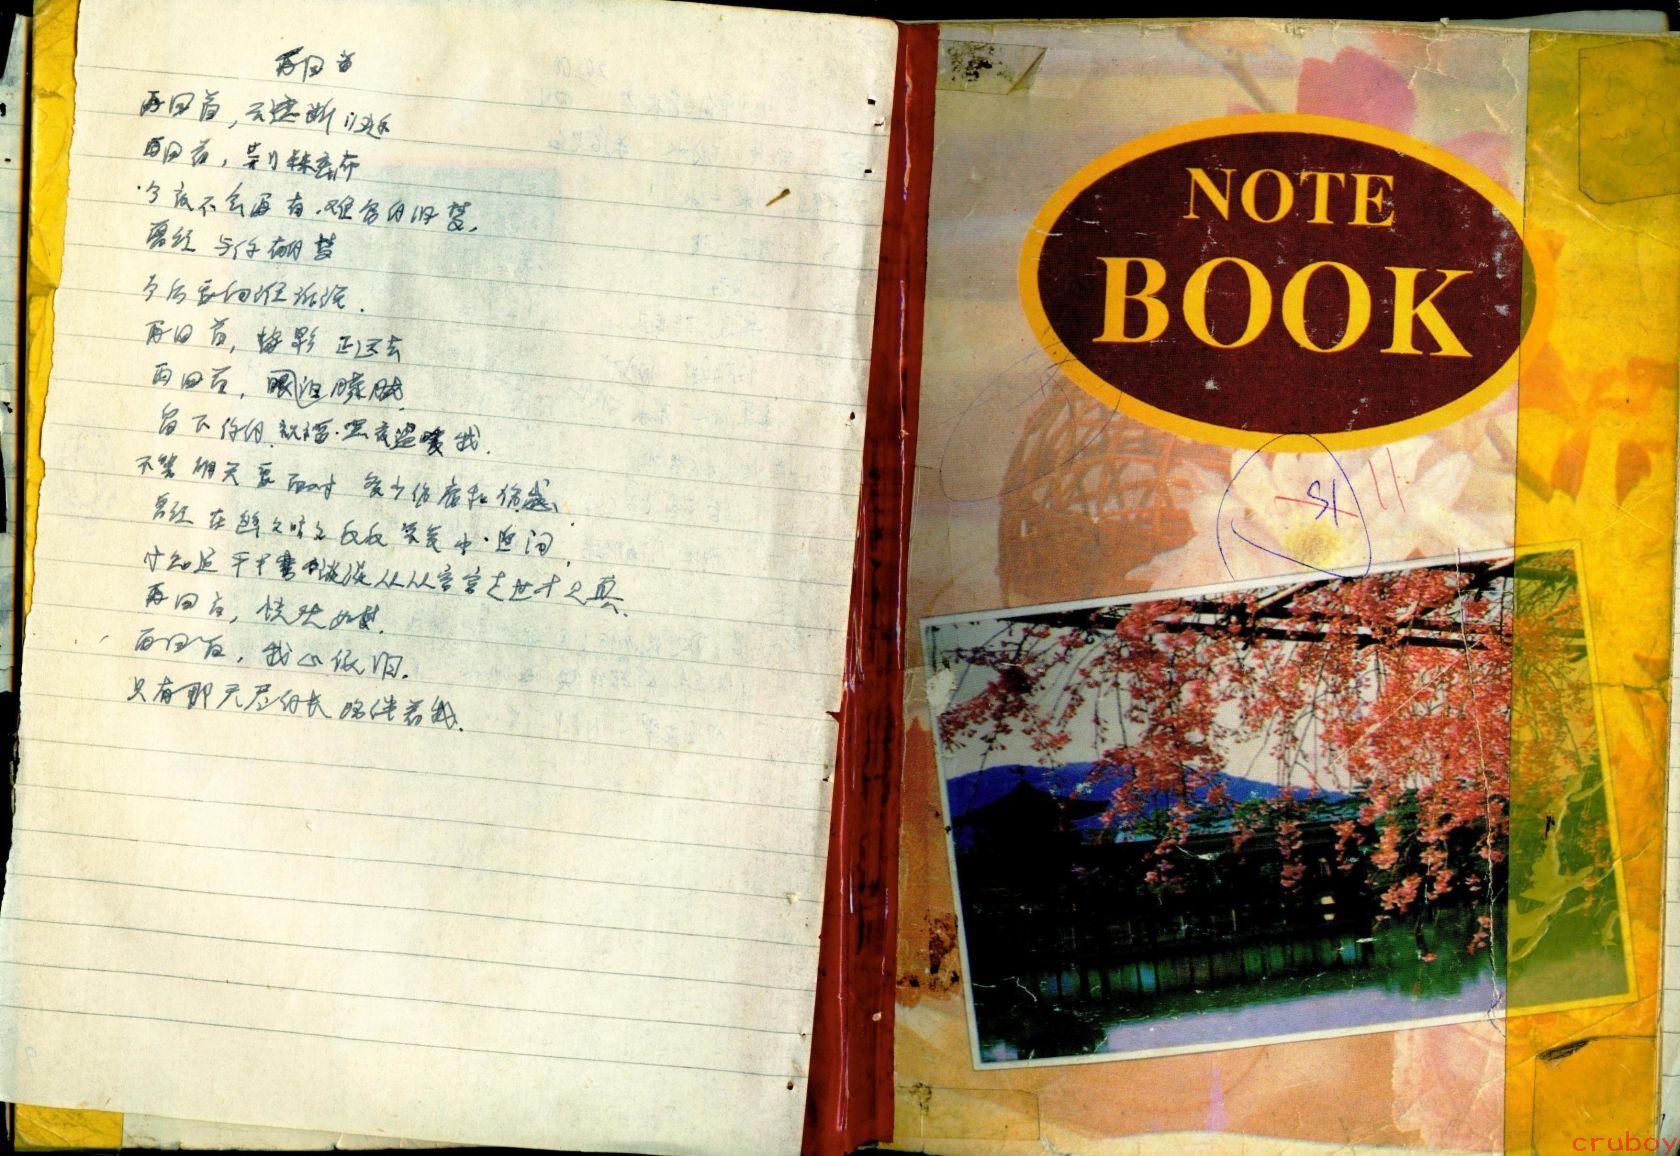 再回首
再回首，云遮断归途
再回首，荆棘密布
今夜不会再有，难舍的旧梦，
曾经与你有的梦
今后要向谁诉说.
再回首， 影 已远去
再回首，眼泪朦胧
留下你的祝福. 夜温暖我.
不管明天要面对 多少伤痛和
曾经在幽幽暗暗反反复复中.追问，
才知道平平 淡淡从从容容 真.
再回首，恍然如梦.
再回首，我心依旧.
只有那无尽的长路伴着我.
NOTE
BOOK
cruboy